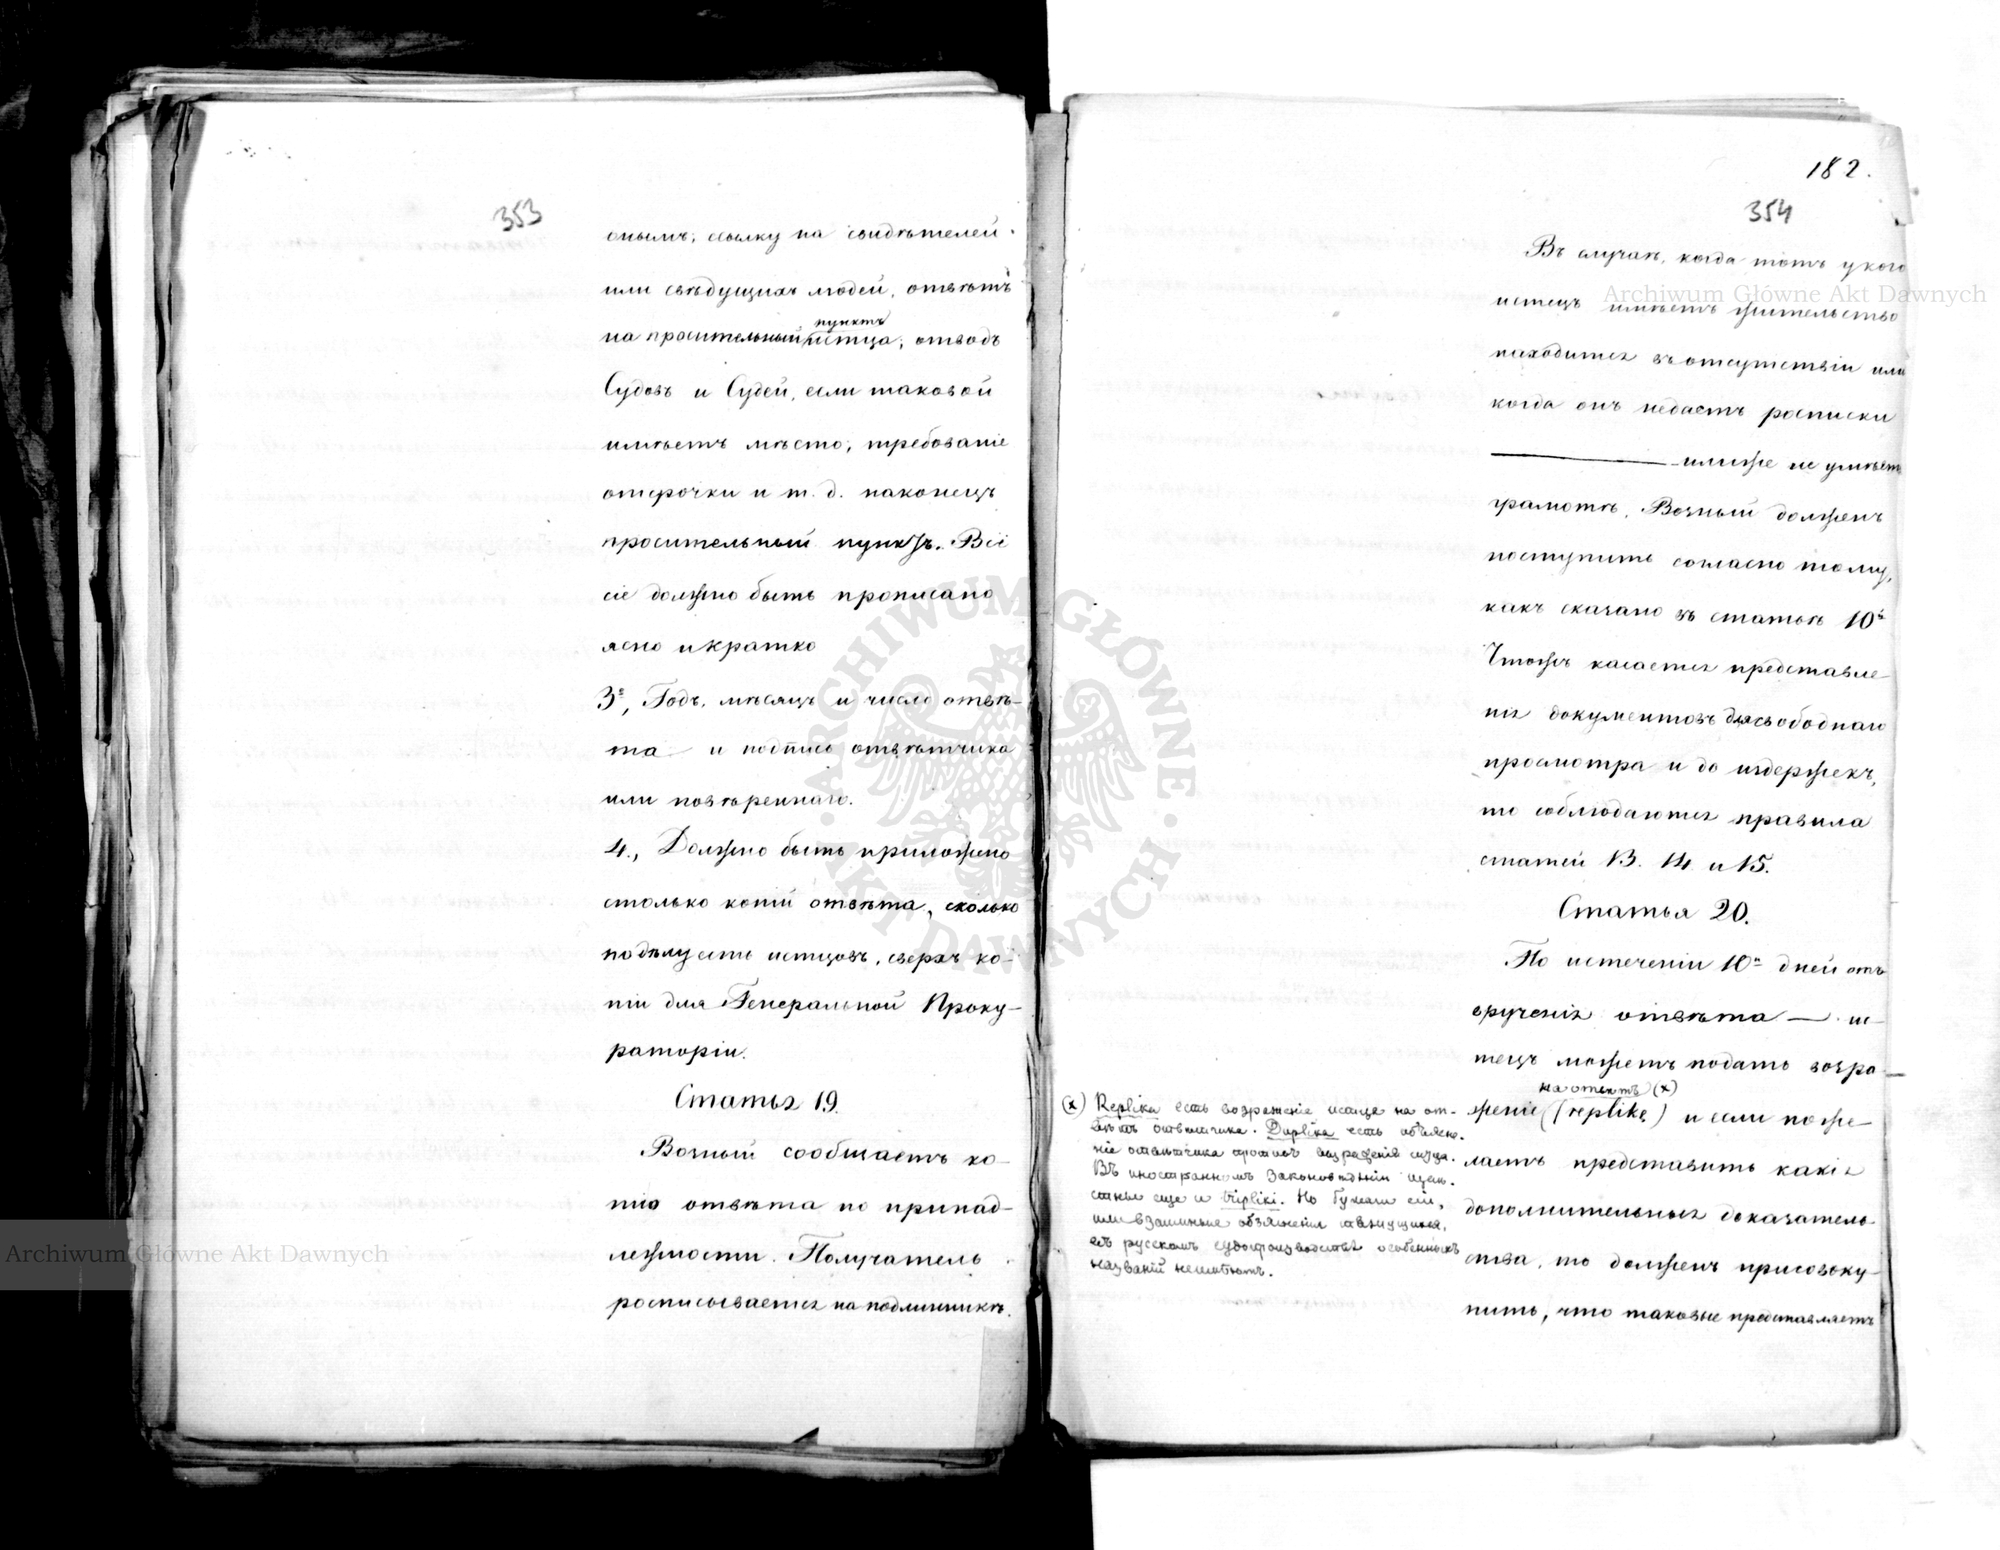 353
онымъ; ссылку на свидѣтелей
или свѣдущихъ людей, отвѣтъ
пунктъ
на просительный истца; отводъ
Судовъ и Судей, если таковой
имѣетъ мѣсто; требованіе
отсрочки и т. д. наконецъ
просительный пунктъ. Всё
сіе должно быть прописано
ясно и кратко
3е, Годъ, мѣсяцъ и число отвѣ-
та и подпись отвѣтчика
или повѣреннаго.
4., Должно быть приложено
столько копій отвѣта, сколько
по дѣлу есть истцовъ, сверхъ ко-
піи для Генеральной Проку-
раторіи.
Статья 19.
Возный сообщаетъ ко-
пію отвѣта по принад-
лежности. Получатель
росписывается на подлинникѣ.
182.
354
Въ случаѣ, когда тотъ у кого
истецъ имѣетъ жительство
находится въ отсутствіи или
когда онъ недастъ росписки
илиже не умѣетъ
грамотѣ, Возный долженъ
поступить согласно тому,
какъ сказано въ статьѣ 10й
Чтожъ касается представле-
нія документовъ для свободнаго
просмотра и до издержекъ,
то соблюдаются правила
статей 13. 14 и 15.
Статья 20.
По истеченіи 10и дней отъ
врученія отвѣта — ис-
тецъ можетъ подать возра-
на отвѣтъ (x)
женіе (replikę) и если поже-
лаетъ представить какія
дополнительныя доказатель
ства, то долженъ присовоку-
пить, что таковые представляетъ
(x) Replika есть возраженіе истца на от-
вѣтъ отвѣтчика. Duplika есть объясне-
ніе отвѣтчика противъ возраженія истца.
Въ иностранномъ Законовѣдѣніи извѣ-
стны еще и tripliki. Но бумаги сіи,
или взаимные объясненія тяжущихся,
въ русскомъ судопроизводствѣ особенныхъ
названій неимѣютъ.
Archiwum Główne Akt Dawnych
Archiwum Główne Akt Dawnych
ARCHIWUM GŁÓWNE AKT DAWNYCH